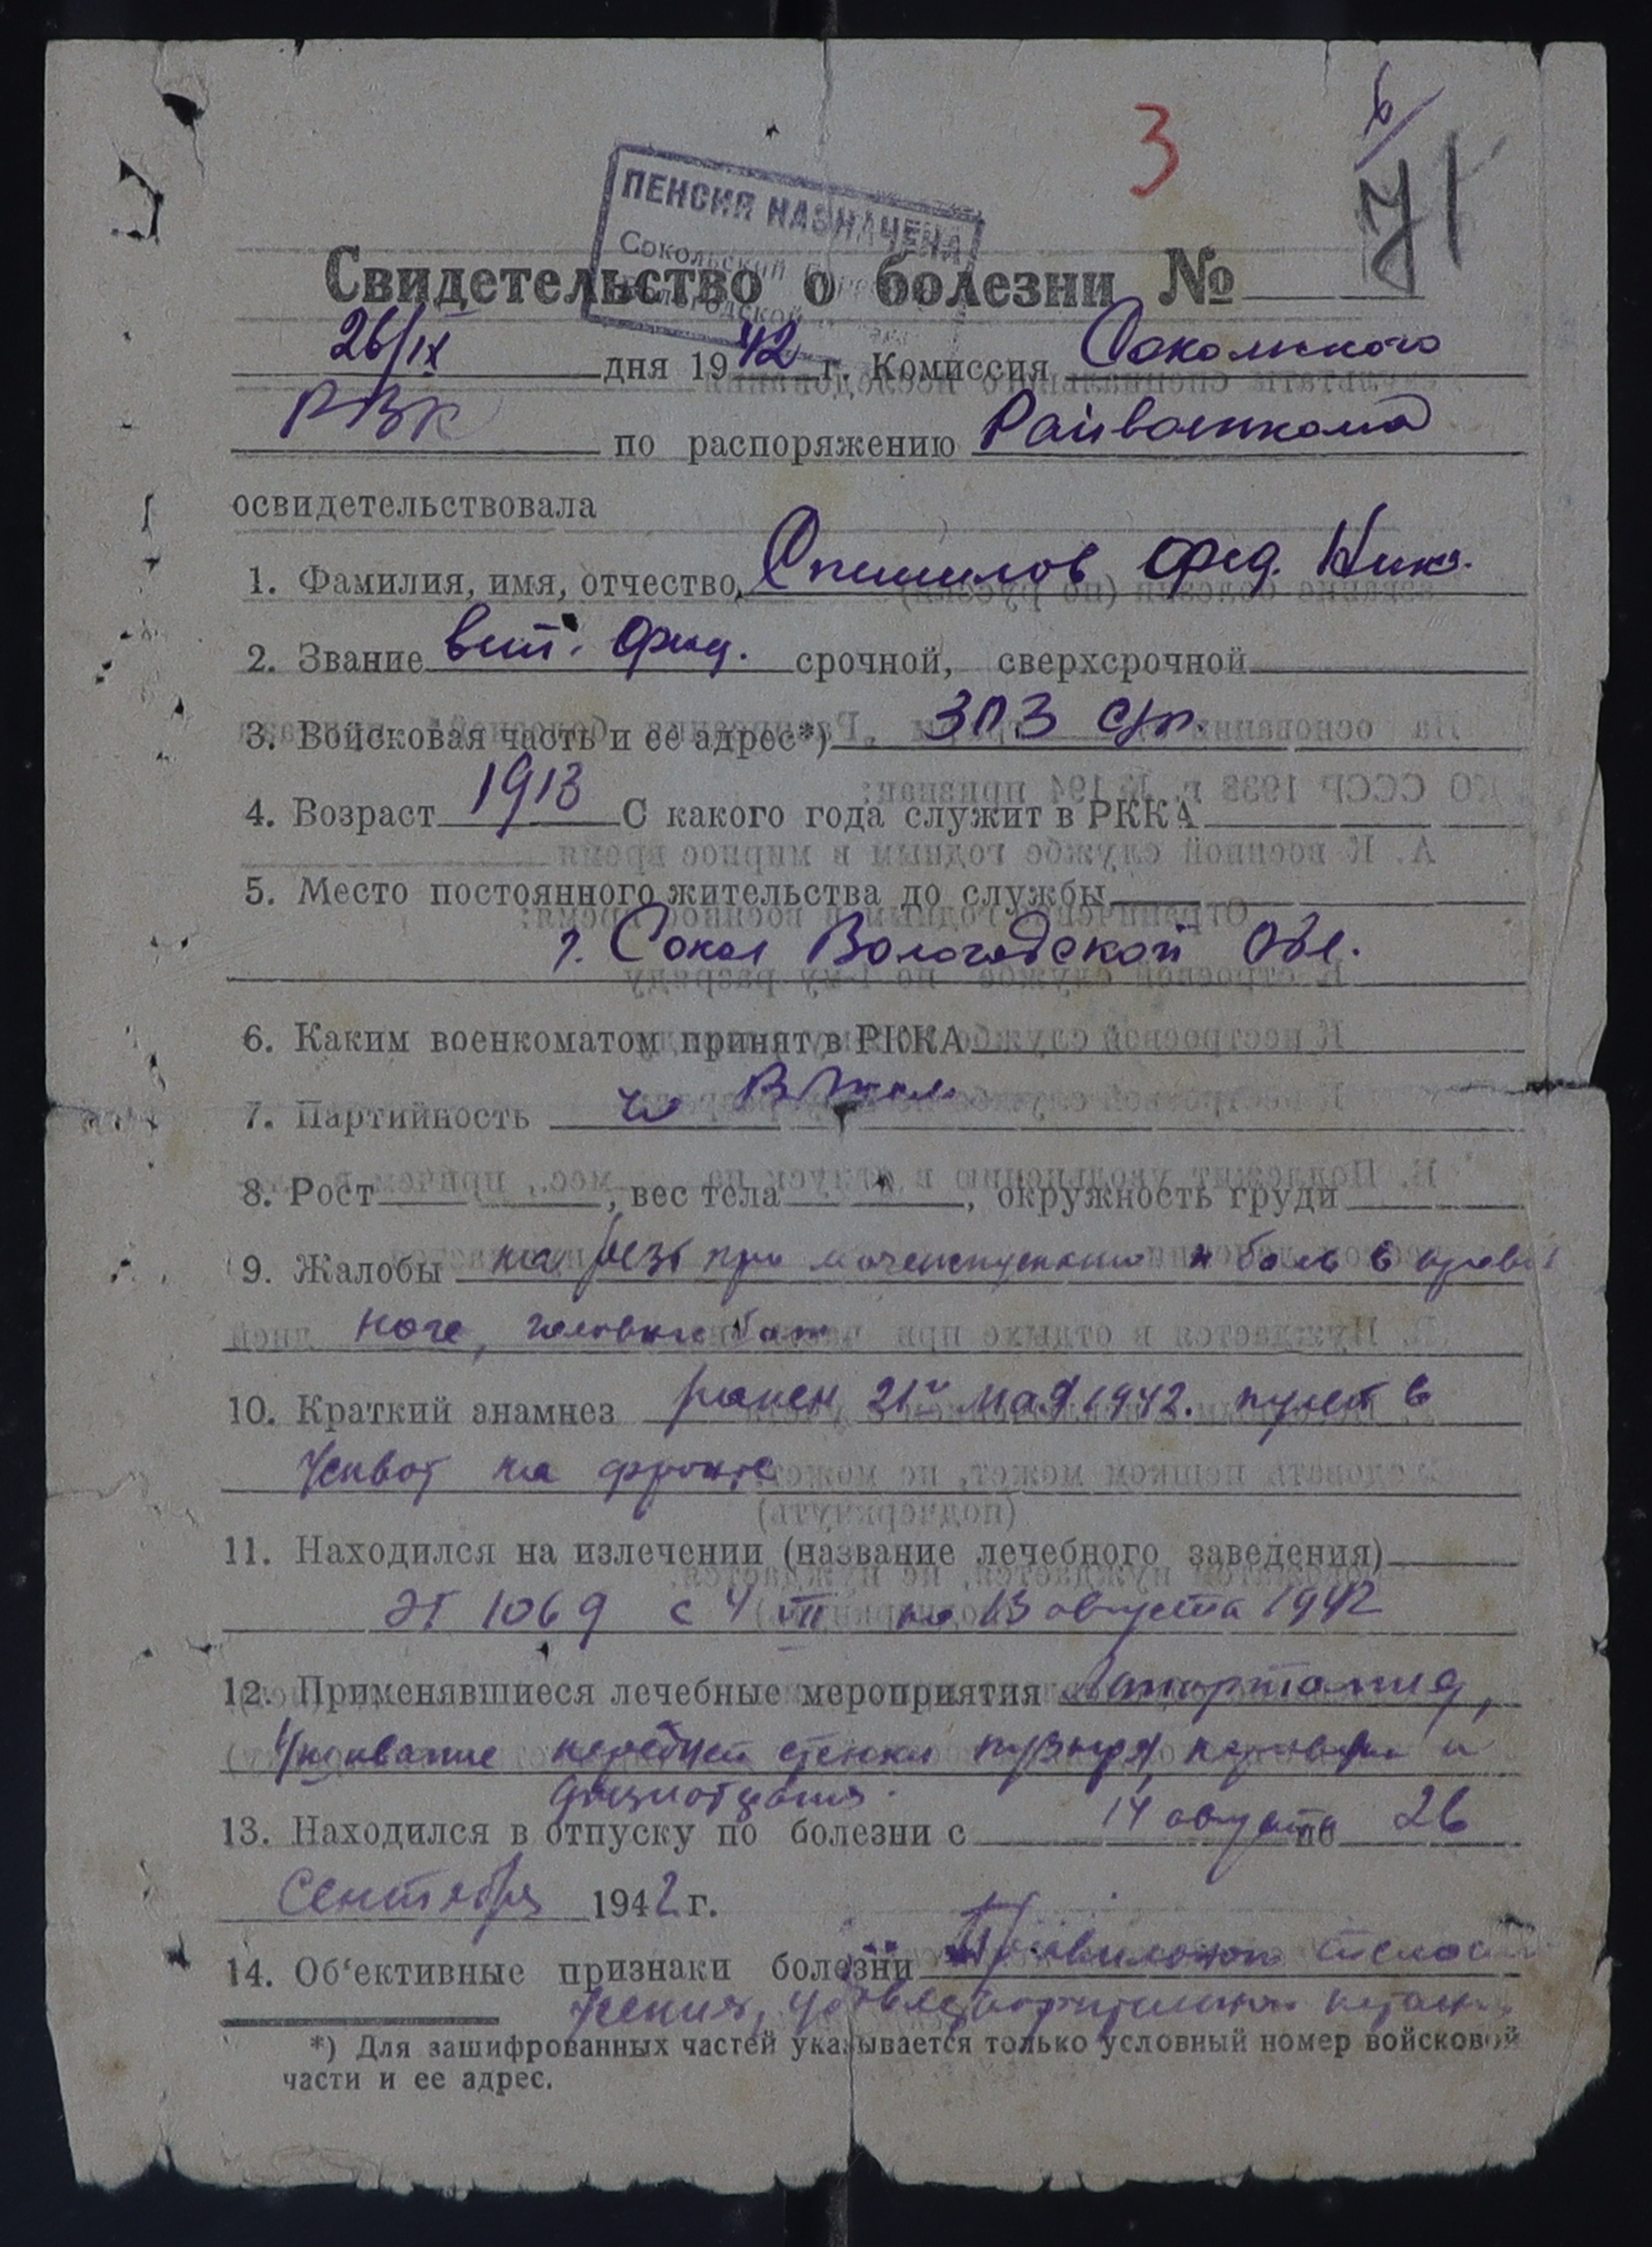 3
6
71
ПЕНСИЯ НАЗНАЧЕНА
Сокольский
Вологодской
Свидетельство о болезни №
26/IX дня 1942 г. Комиссия Сокольского
РВК по распоряжению Райвоенкома
освидетельствовала
1. Фамилия, имя, отчество Фед. Ник.
2. Звание вет. фел. срочной, сверхсрочной
3. Войсковая часть и ее адрес*) сп.
4. Возраст 1913 С какого года служит в РККА
5. Место постоянного жительства до службы
г. Сокол Вологодской Обл.
6. Каким военкоматом принят в РККА
7. Партийность чл
8. Рост , вес тела , окружность груди
9. Жалобы на резь при мочеиспускании и боль в правой
ноге, головные боли
10. Краткий анамнез ранен 21го мая 1942. пулей в
живот на фронте
11. Находился на излечении (название лечебного заведения)
ЭГ 1069 с 4 VII по 13 августа 1942
12. Применявшиеся лечебные мероприятия
передней стенки пузыря, и
13. Находился в отпуску по болезни с 14 августа по 26
Сентября 1942 г.
14. Об'ективные признаки болезни Правильного телосло
жения, удовлетворительного питания
*) Для зашифрованных частей указывается только условный номер войсковой
части и ее адрес.